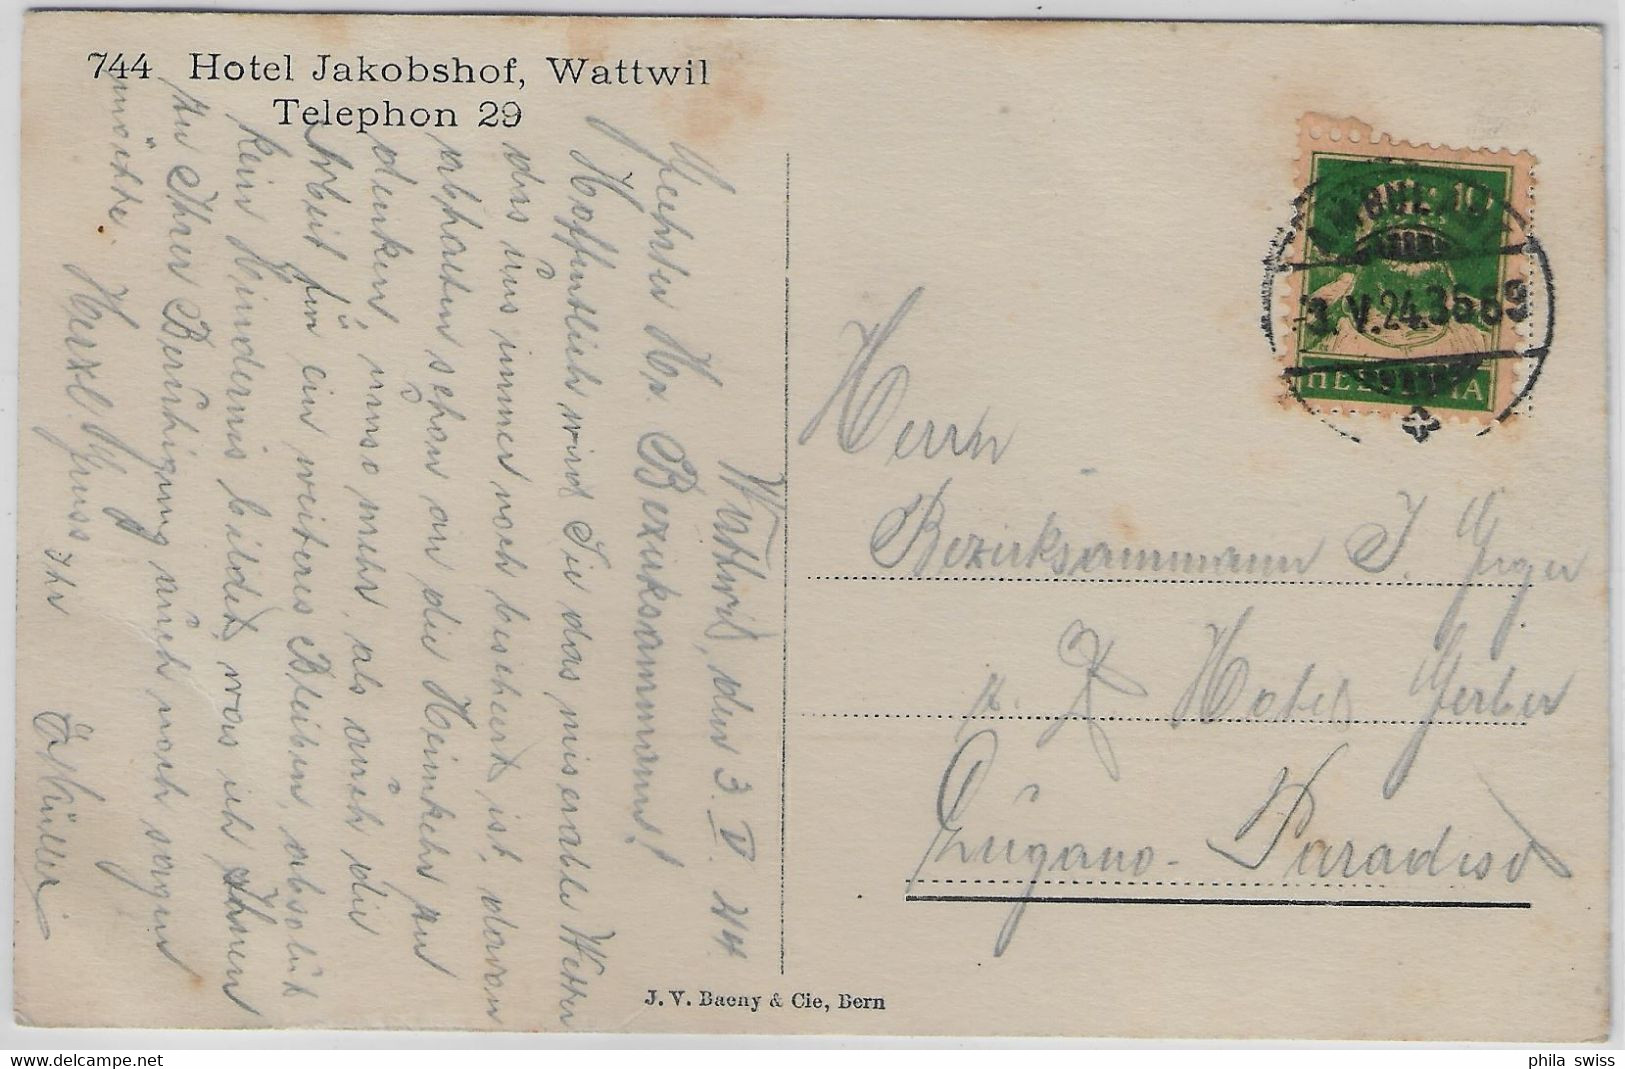 744 Hotel Jakobshof, Wattwil
Telephon 29
Wattwil, den 3. V. 24.
Geehrter Hr. Bezirksammann!
Hoffentlich wird Sie das miserable Wetter
das uns immer noch beschert ist, davon
abhalten schon an die Heimkehr zu
denken, umso mehr, als auch die
Arbeit für ein weiteres Bleiben, absolut
kein Hindernis bildet, was ich Ihnen
zu Ihrer Beruhigung auch noch sagen
möchte.
Herzl. Gruss Ihr
Müller
Herrn
Bezirksammann J.
z. Z. Hotel Gerber
Lugano-Paradiso
AMBUL. 10
-3. V. 24. 3569
HELVETIA
J. V. Baeny & Cie, Bern
phila swiss